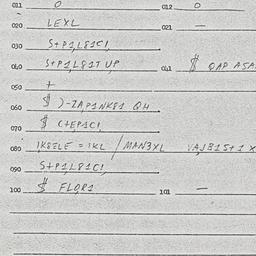 011 0 012 0
020 LEXL 021 —
030 S+P1L81C!
040 S+P1L81T UP 041 $ QAP ASA
050 +
060 $ )-ZAP1NK81 QH
070 $ C+EP1C!
080 1K8ELE = 1KL / MAN3XL VAJB15+1 X
090 S+P1L81C!
100 $ FLOR1 101 —